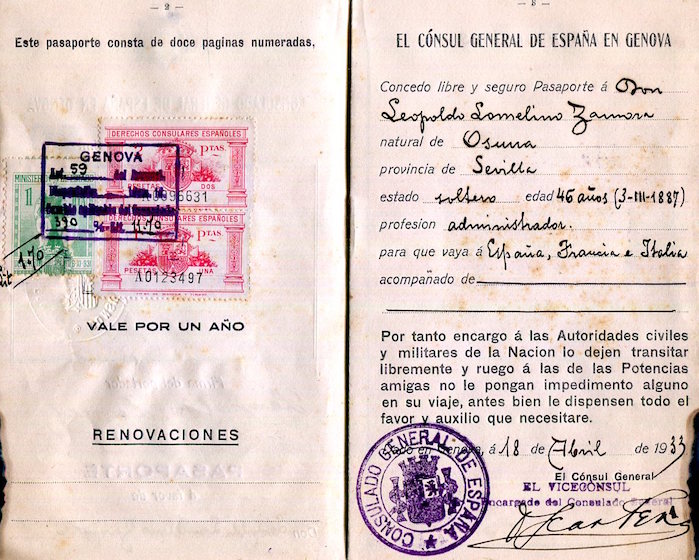 — 2 —
Este pasaporte consta de doce paginas numeradas.
DERECHOS CONSULARES ESPAÑOLES
PTAS.
PESETAS DOS
A0096631
GENOVA
59
MINISTERIO
1
330 11.70
1.70
DERECHOS CONSULARES ESPAÑOLES
PTAS.
PESETAS UNA
A0123497
VALE POR UN AÑO
RENOVACIONES
EL CÓNSUL GENERAL DE ESPAÑA EN GENOVA
Concedo libre y seguro Pasaporte á Don
Leopoldo Lomelino Zamora
natural de Osuna
provincia de Sevilla
estado soltero edad 46 años (3-III-1887)
profesion administrador.
para que vaya á España, Francia e Italia
acompañado de
Por tanto encargo á las Autoridades civiles
y militares de la Nacion lo dejen transitar
libremente y ruego á las de las Potencias
amigas no le pongan impedimento alguno
en su viaje, antes bien le dispensen todo el
favor y auxilio que necesitare.
en Genova, á 18 de Abril de 1933
El Cónsul General
EL VICECÓNSUL
Encargado del Consulado General
CONSULADO GENERAL DE ESPAÑA